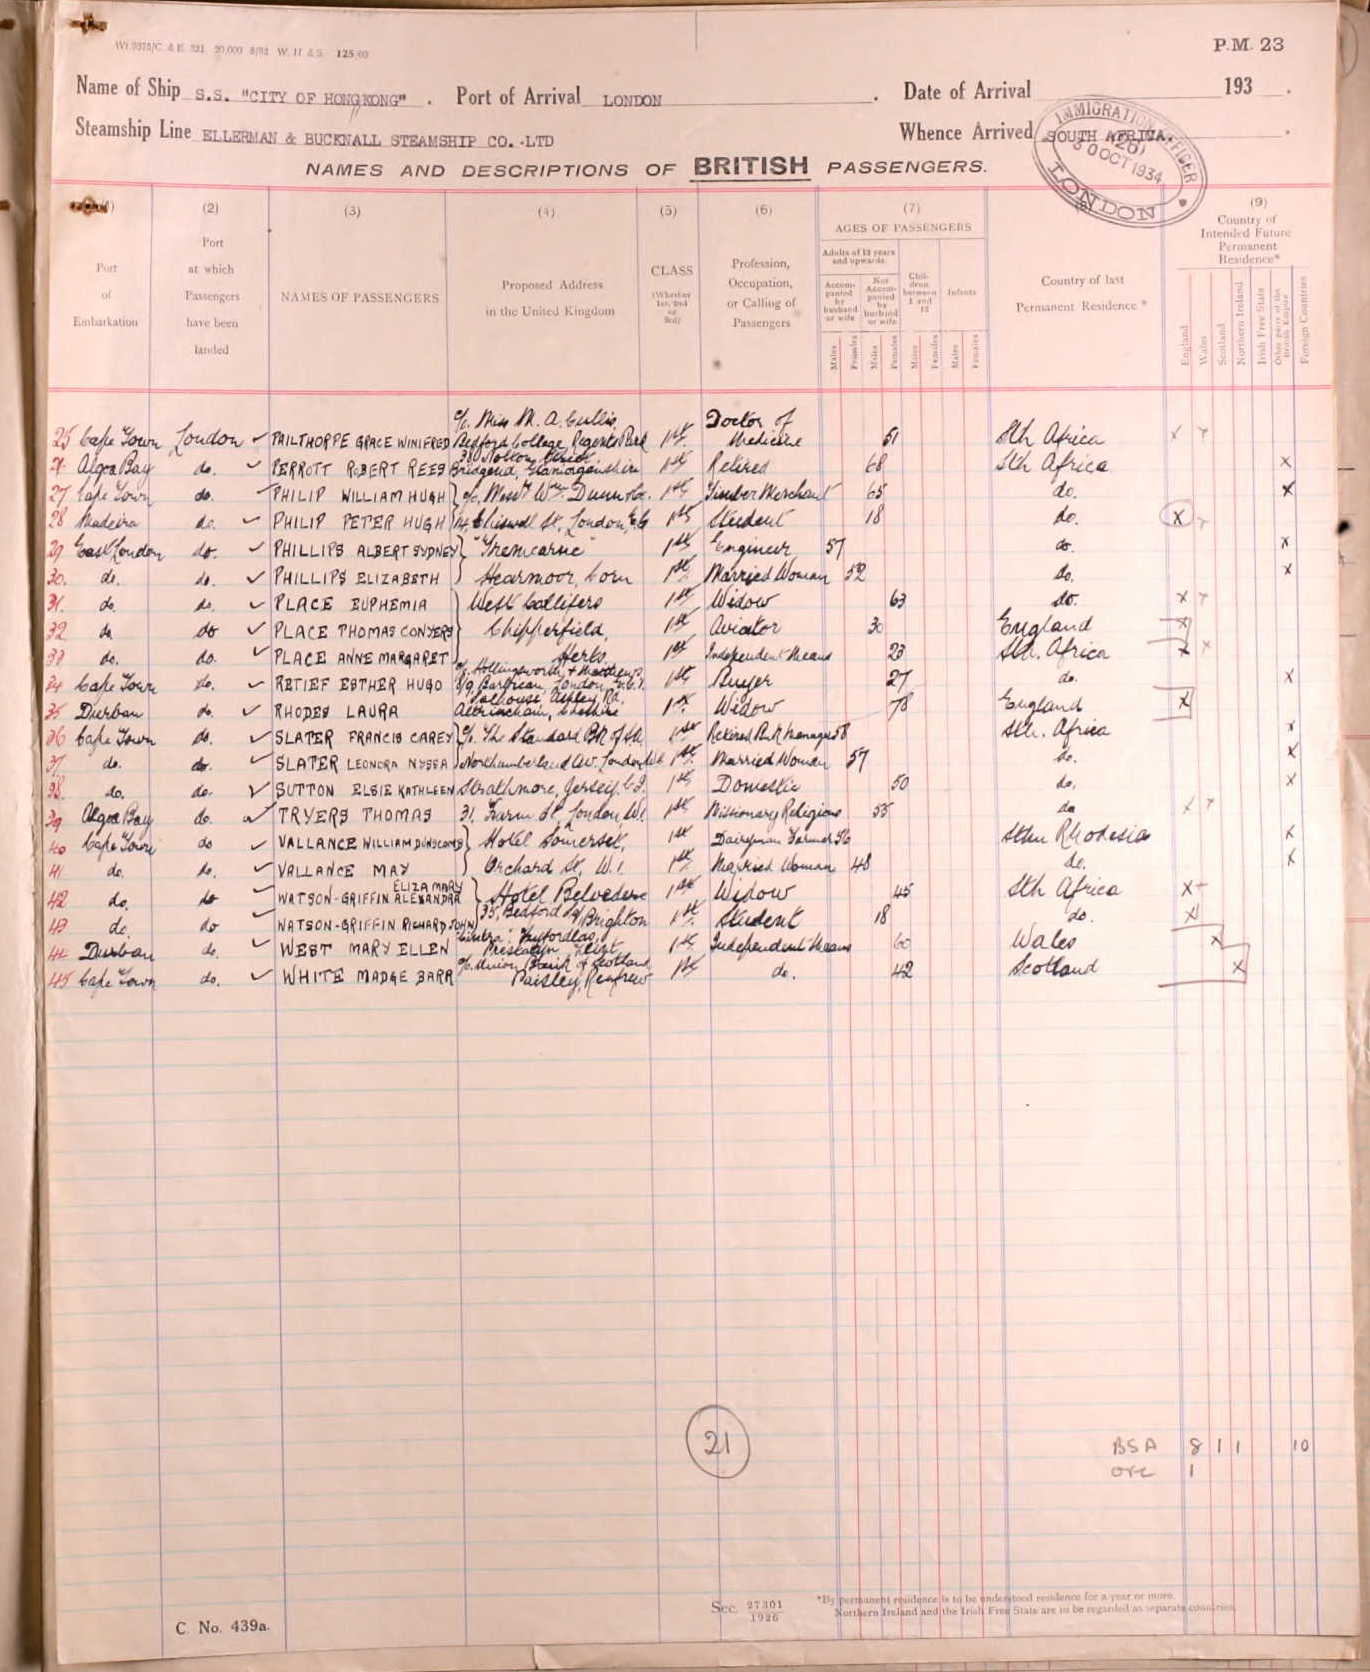 Wt.9378/C. & E. 321 20,000 8/32 W. H. & S. 125/60
P.M. 23
Name of Ship S.S. "CITY OF HONGKONG" . Port of Arrival LONDON . Date of Arrival 193 .
Steamship Line ELLERMAN & BUCKNALL STEAMSHIP CO. LTD Whence Arrived SOUTH AFRICA.
IMMIGRATION OFFICER (26) 30 OCT 1934 LONDON
NAMES AND DESCRIPTIONS OF BRITISH PASSENGERS.
(1) Port of Embarkation
(2) Port at which Passengers have been landed
(3) NAMES OF PASSENGERS
(4) Proposed Address in the United Kingdom
(5) CLASS (Whether 1st, 2nd or 3rd)
(6) Profession, Occupation, or Calling of Passengers
(7) AGES OF PASSENGERS
Adults of 12 years and upwards
Accompanied by husband or wife
Not Accompanied by husband or wife
Children between 1 and 12
Infants
Males Females Males Females Males Females Males Females
(8) Country of last Permanent Residence *
(9) Country of Intended Future Permanent Residence*
England Wales Scotland Northern Ireland Irish Free State Other parts of the British Empire Foreign Countries
25 Cape Town London ✓ PAILTHORPE GRACE WINIFRED c/o Miss M. A. Cullis, Bedford College, Regents Park 1st Doctor of Medicine 51 Sth Africa x
26 Algoa Bay do. ✓ PERROTT ROBERT REES Bridgend, Glamorganshire 1st Retired 68 Sth Africa x
27 Cape Town do. ✓ PHILIP WILLIAM HUGH } c/o Messrs Wm. Dunn & Co. 1st Timber Merchant 65 do. x
28 Madeira do. ✓ PHILIP PETER HUGH Chiswell St, London, E.C. 1st Student 18 do. x
29 East London do. ✓ PHILLIPS ALBERT SYDNEY } "Tremcarne" 1st Engineer 57 do. x
30. do. do. ✓ PHILLIPS ELIZABETH } Hearmoor, Corn 1st Married Woman 52 do. x
31. do. do. ✓ PLACE EUPHEMIA } West Colliers 1st Widow 63 do. x
32 do. do ✓ PLACE THOMAS CONYERS } Chipperfield, 1st Aviator 30 England x
33 do. do. ✓ PLACE ANNE MARGARET } Herts 1st Independent Means 23 Sth. Africa x x
34 Cape Town do. ✓ RETIEF ESTHER HUGO c/o Hollingsworth & Matthews, Barbican, London, E.C.1. 1st Buyer 27 do. x
35 Durban do. ✓ RHODES LAURA Ashley Rd. Altrincham, Cheshire 1st Widow 78 England x
36 Cape Town do. ✓ SLATER FRANCIS CAREY } c/o The Standard Bk of SA, 1st Retired Bank Manager 58 Sth. Africa x
37. do. do. ✓ SLATER LEONORA NYSSA } Northumberland Av. London WC 1st Married Woman 57 do. x
38. do. do. ✓ SUTTON ELSIE KATHLEEN Strathmore, Jersey, C.I. 1st Domestic 50 do. x
39 Algoa Bay do. ✓ TRYERS THOMAS 31, Farm St, London, W.1. 1st Missionary Religious 55 do x
40 Cape Town do ✓ VALLANCE WILLIAM DUNSCOMB } Hotel Somerset, 1st Dairyman Farmer 56 Sthn Rhodesia x
41 do. do. ✓ VALLANCE MAY } Orchard St, W.1. 1st Married Woman 48 do. x
42 do. do ✓ WATSON-GRIFFIN ELIZA MARY ALEXANDRA } Hotel Belvedere 1st Widow 45 Sth Africa x
43 do. do ✓ WATSON-GRIFFIN RICHARD JOHN 35, Bedford Sq Brighton 1st Student 18 do. x
44 Durban do. ✓ WEST MARY ELLEN "Cintra" Prestatyn Flint 1st Independent Means 60 Wales x
45 Cape Town do. ✓ WHITE MADGE BARR c/o Union Bank of Scotland, Paisley, Renfrew 1st do. 42 Scotland x
21
BSA 8 1 1 10
1
C. No. 439a.
Sec. 27301 1926
*By permanent residence is to be understood residence for a year or more.
Northern Ireland and the Irish Free State are to be regarded as separate countries.